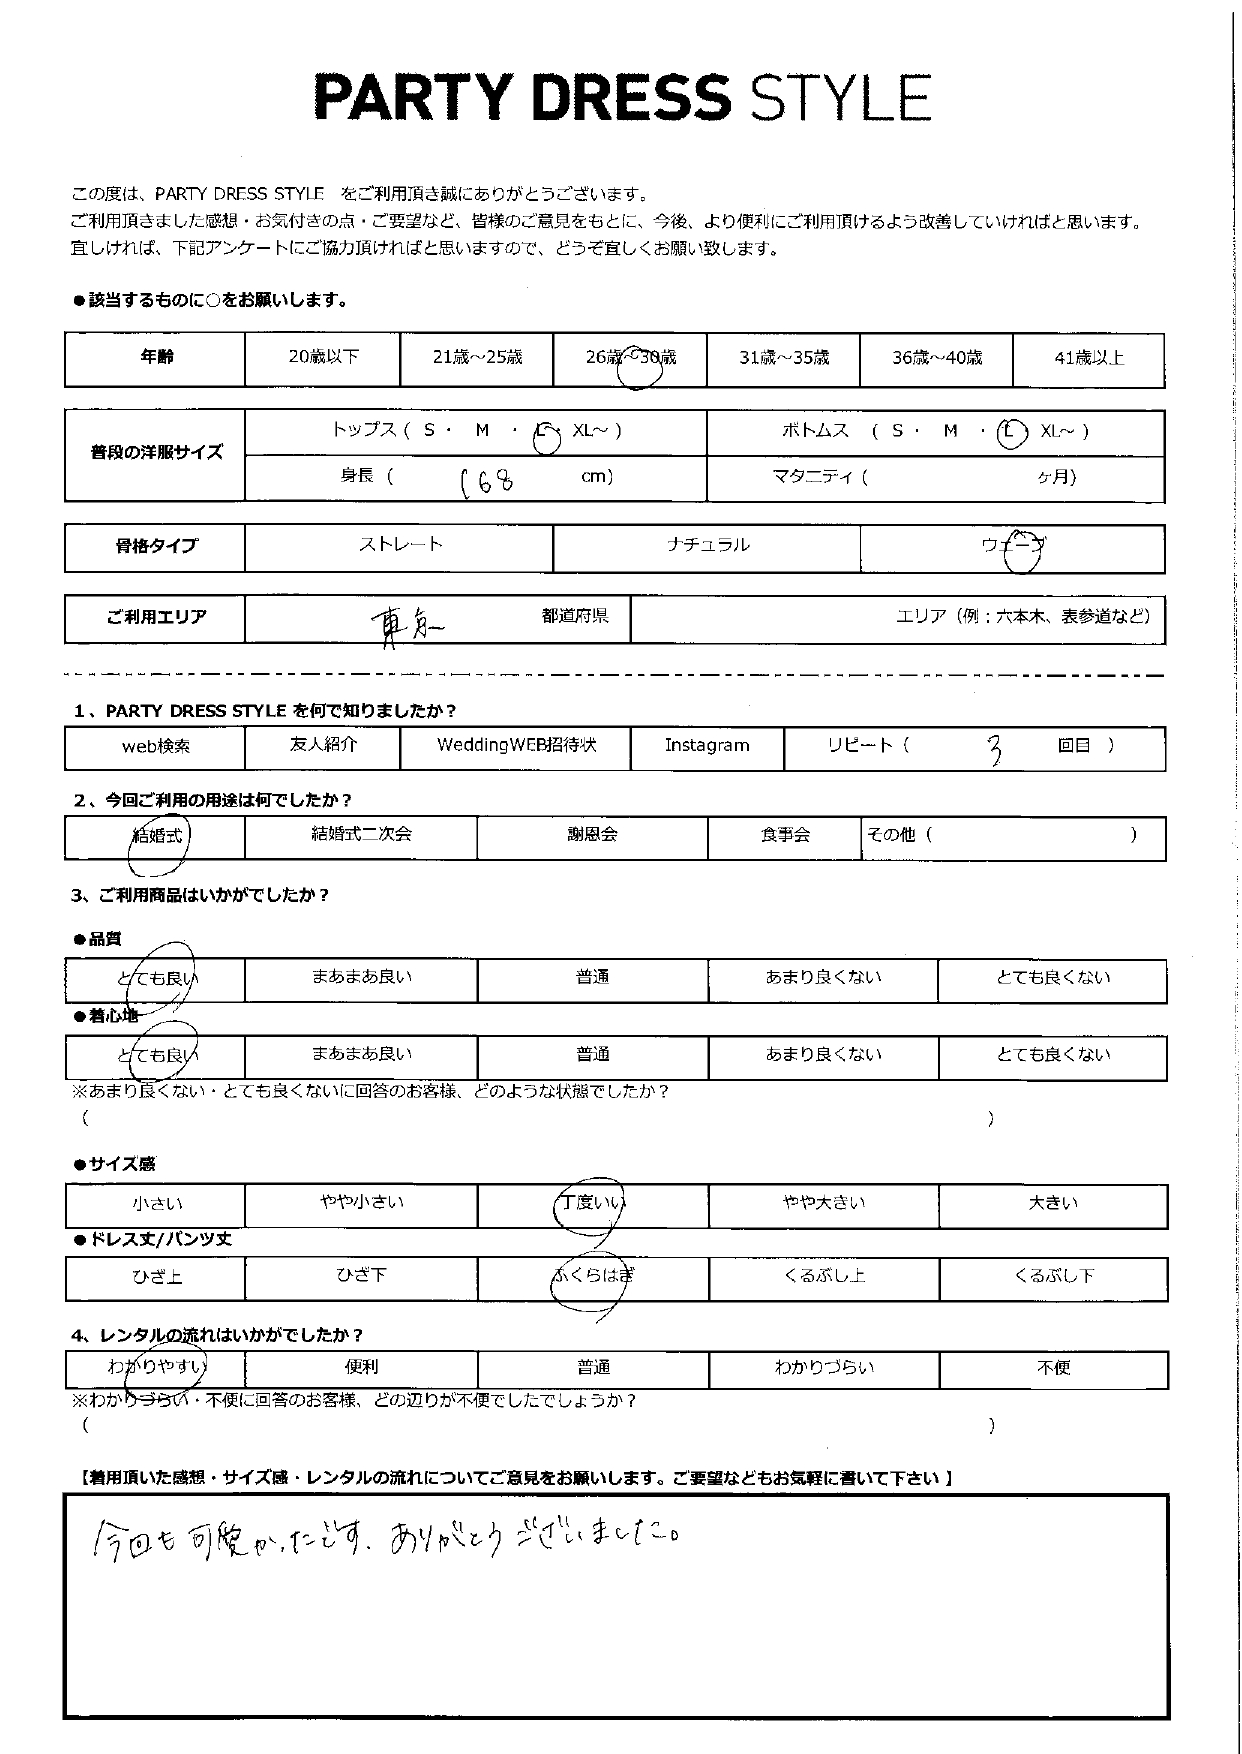 PARTY DRESS STYLE
この度は、PARTY DRESS STYLE をご利用頂き誠にありがとうございます。
ご利用頂きました感想・お気付きの点・ご要望など、皆様のご意見をもとに、今後、より便利にご利用頂けるよう改善していければと思います。
宜しければ、下記アンケートにご協力頂ければと思いますので、どうぞ宜しくお願い致します。
●該当するものに○をお願いします。
年齢 20歳以下 21歳～25歳 26歳～30歳 31歳～35歳 36歳～40歳 41歳以上
普段の洋服サイズ トップス ( S ・ M ・ L ・ XL～ ) ボトムス ( S ・ M ・ L ・ XL～ )
身長 ( 168 cm) マタニティ ( ヶ月)
骨格タイプ ストレート ナチュラル ウェーブ
ご利用エリア 東京 都道府県 エリア（例：六本木、表参道など）
1、PARTY DRESS STYLE を何で知りましたか？
web検索 友人紹介 WeddingWEB招待状 Instagram リピート ( 3 回目 )
2、今回ご利用の用途は何でしたか？
結婚式 結婚式二次会 謝恩会 食事会 その他 ( )
3、ご利用商品はいかがでしたか？
●品質
とても良い まあまあ良い 普通 あまり良くない とても良くない
●着心地
とても良い まあまあ良い 普通 あまり良くない とても良くない
※あまり良くない・とても良くないに回答のお客様、どのような状態でしたか？
( )
●サイズ感
小さい やや小さい 丁度いい やや大きい 大きい
●ドレス丈/パンツ丈
ひざ上 ひざ下 ふくらはぎ くるぶし上 くるぶし下
4、レンタルの流れはいかがでしたか？
わかりやすい 便利 普通 わかりづらい 不便
※わかりづらい・不便に回答のお客様、どの辺りが不便でしたでしょうか？
( )
【着用頂いた感想・サイズ感・レンタルの流れについてご意見をお願いします。ご要望などもお気軽に書いて下さい】
今回も可愛かったです。ありがとうございました。